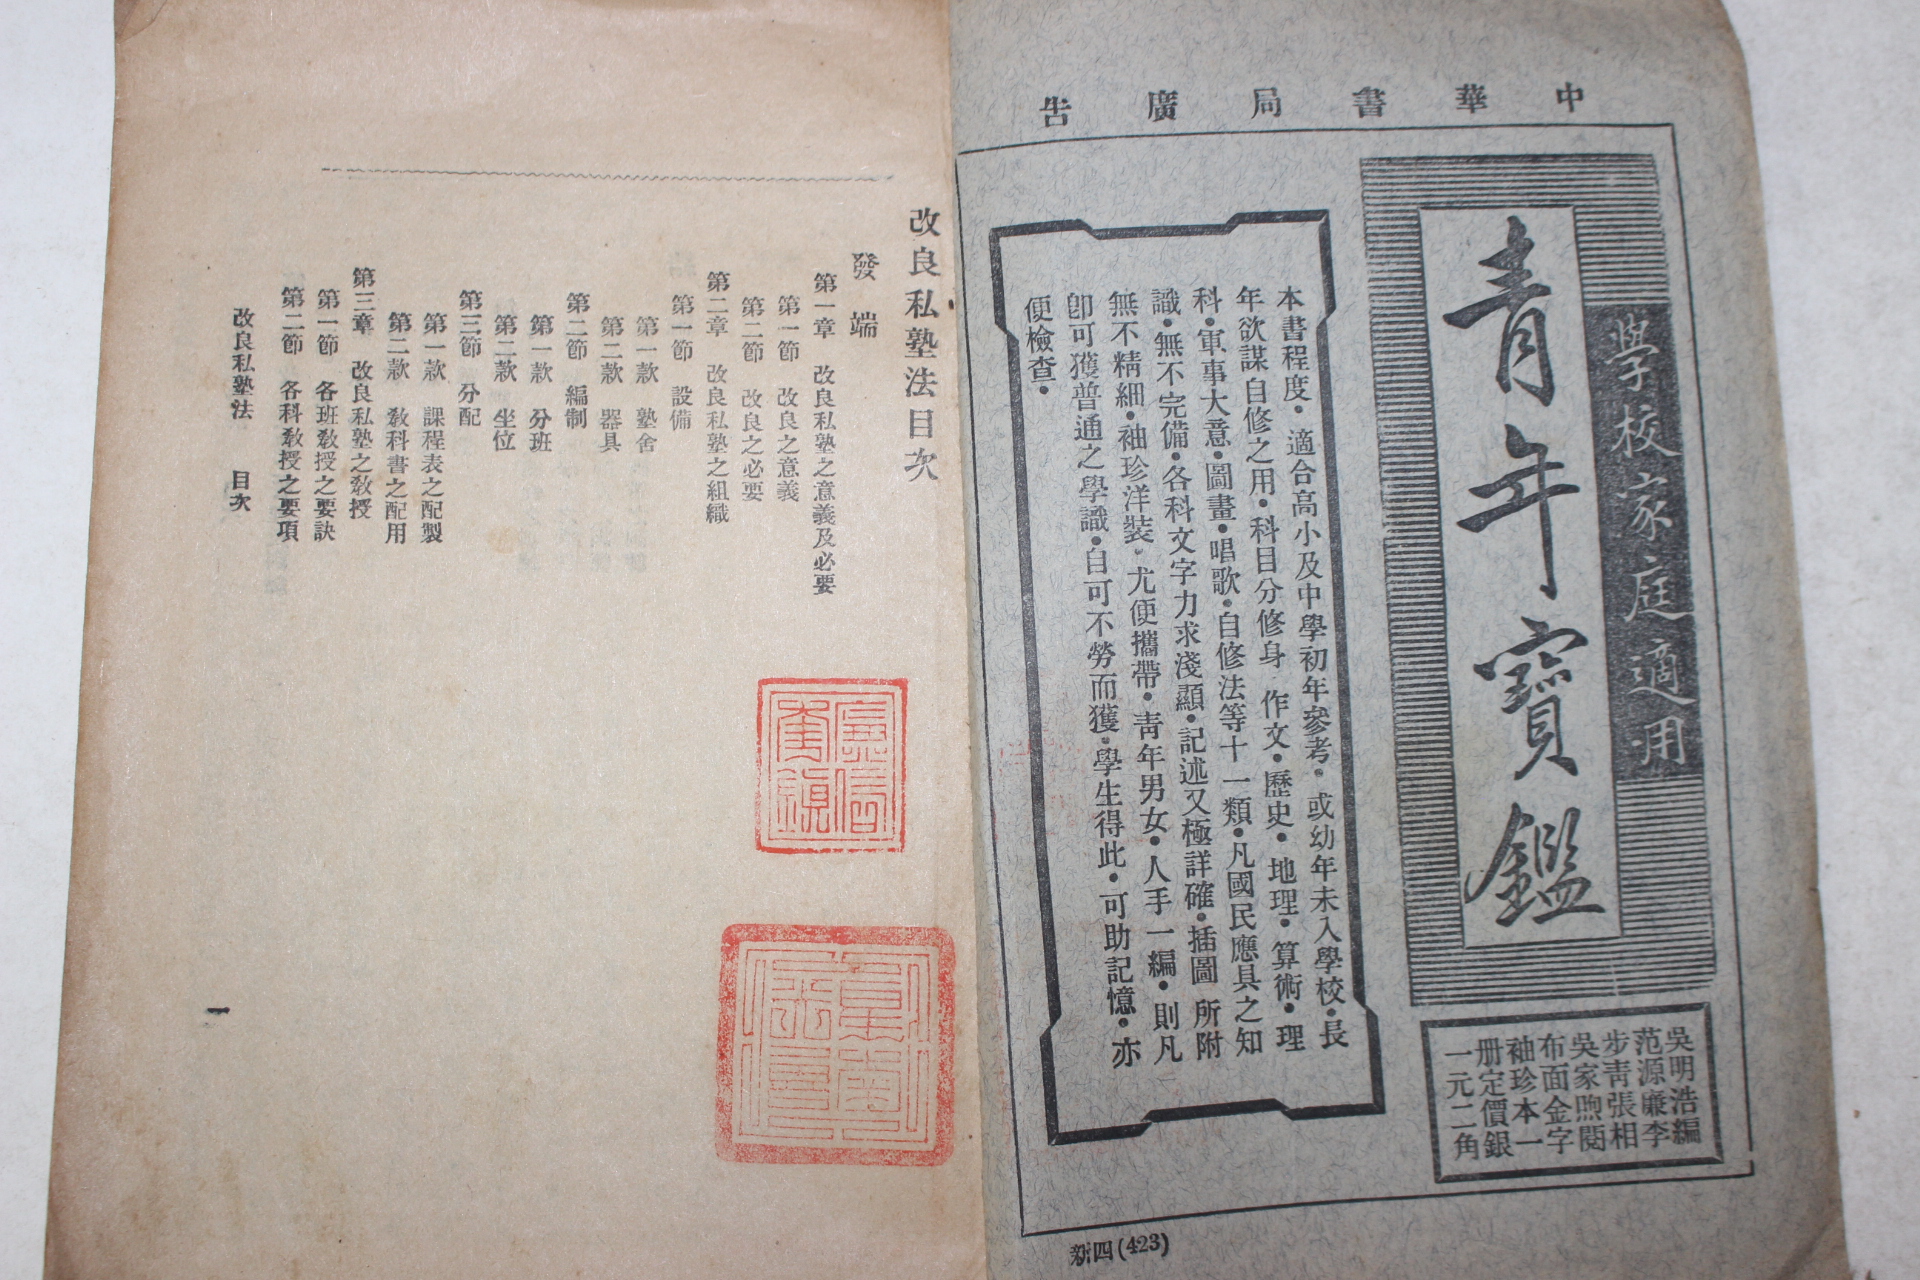 中華書局廣告
學校家庭適用
青年寶鑑
吳明浩編
范源廉李
步靑張相
吳家煦閱
布面金字
袖珍本一
册定價銀
一元二角
本書程度·適合高小及中學初年參考·或幼年未入學校·長
年欲謀自修之用·科目分修身·作文·歷史·地理·算術·理
科·軍事大意·圖畫·唱歌·自修法等十一類·凡國民應具之知
識·無不完備·各科文字力求淺顯·記述又極詳確·插圖 所附
無不精細·袖珍洋裝·尤便攜帶·靑年男女·人手一編·則凡
卽可獲普通之學識·自可不勞而獲·學生得此·可助記憶·亦
便檢查·
新四(423)
改良私塾法目次
發端
第一章 改良私塾之意義及必要
第一節 改良之意義
第二節 改良之必要
第二章 改良私塾之組織
第一節 設備
第一款 塾舍
第二款 器具
第二節 編制
第一款 分班
第二款 坐位
第三節 分配
第一款 課程表之配製
第二款 敎科書之配用
第三章 改良私塾之敎授
第一節 各班敎授之要訣
第二節 各科敎授之要項
改良私塾法 目次
一